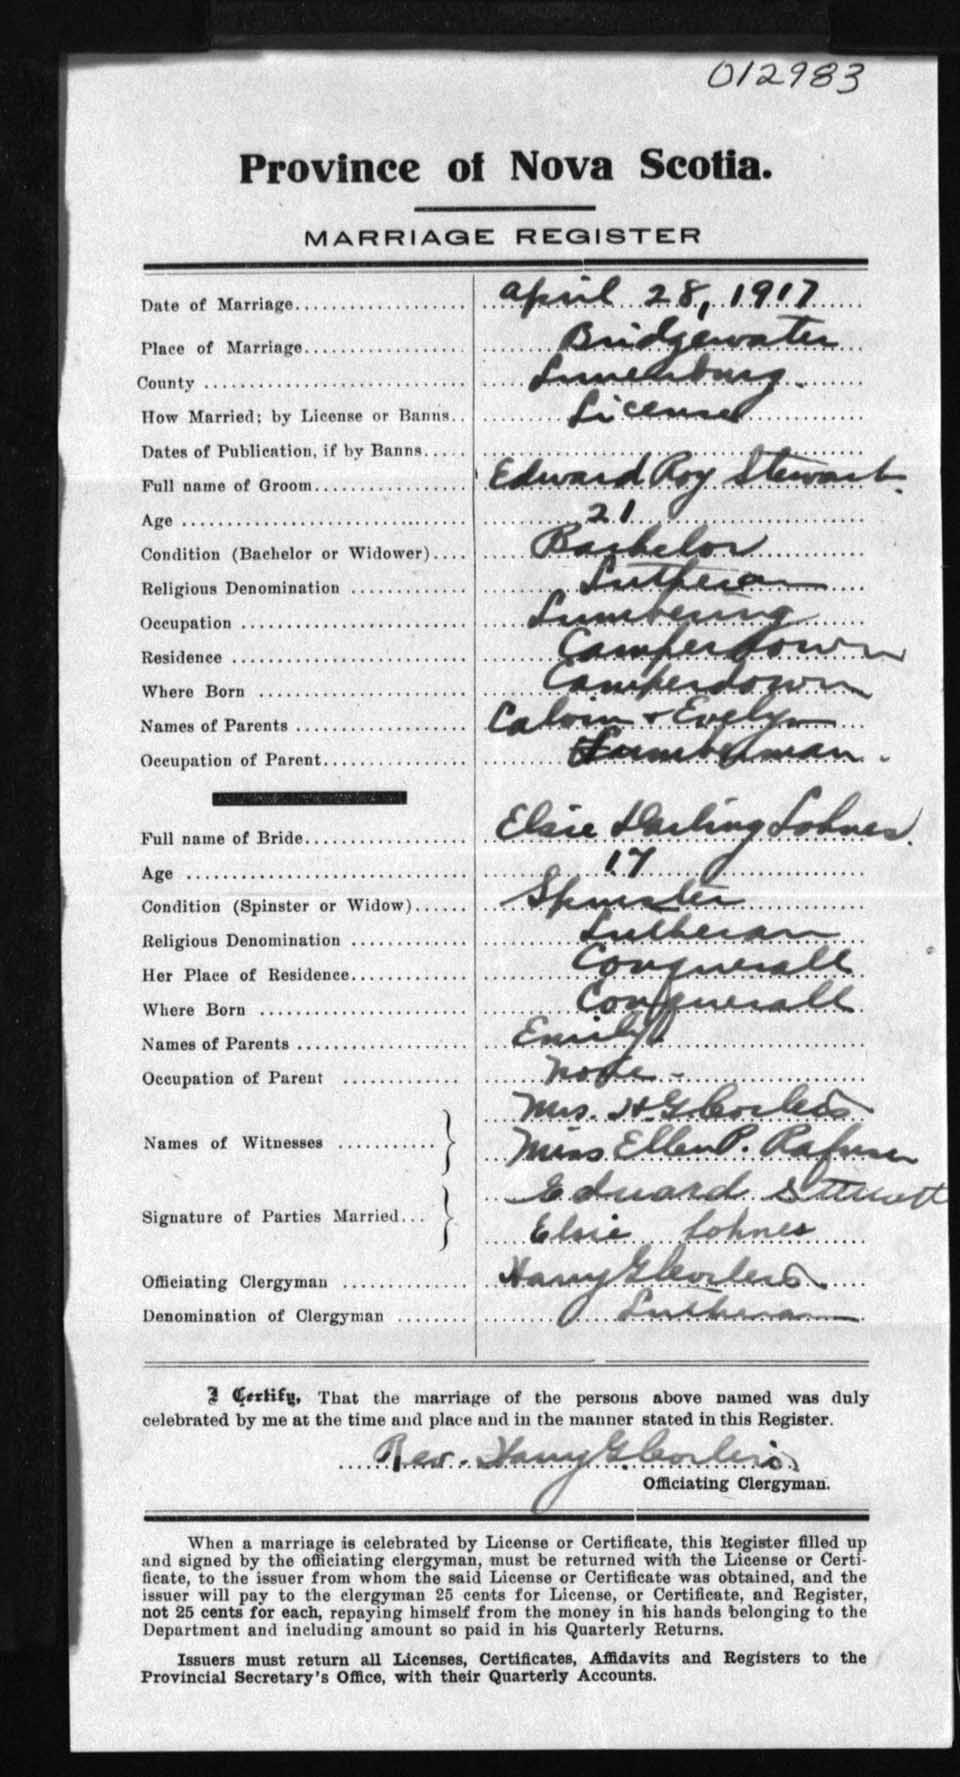 012983
Province of Nova Scotia.
MARRIAGE REGISTER
Date of Marriage................... April 28, 1917
Place of Marriage.................. Bridgewater
County ............................ Lunenburg.
How Married; by License or Banns.. License
Dates of Publication, if by Banns.....
Full name of Groom................. Edward Roy Stewart.
Age ............................... 21
Condition (Bachelor or Widower).... Bachelor
Religious Denomination ............. Lutheran
Occupation ......................... Lumbering
Residence .......................... Camperdown
Where Born ........................ Camperdown
Names of Parents ................... Calvin & Evelyn
Occupation of Parent................ Lumberman.
Full name of Bride.................. Elsie Darling Lohnes.
Age ............................... 17
Condition (Spinster or Widow)...... Spinster
Religious Denomination ............. Lutheran
Her Place of Residence............. Conquerall
Where Born ........................ Conquerall
Names of Parents ................... Emily
Occupation of Parent ............. None -
Mrs. H G Corleis
Names of Witnesses ...........
Miss Ellen P. Rafuse
Edward Stewart
Signature of Parties Married...
Elsie Lohnes
Officiating Clergyman ............. Harry G Corleis
Denomination of Clergyman ........ Lutheran
I Certify, That the marriage of the persons above named was duly
celebrated by me at the time and place and in the manner stated in this Register.
Rev. Harry G Corleis
Officiating Clergyman.
When a marriage is celebrated by License or Certificate, this Register filled up
and signed by the officiating clergyman, must be returned with the License or Certi-
ficate, to the issuer from whom the said License or Certificate was obtained, and the
issuer will pay to the clergyman 25 cents for License, or Certificate, and Register,
not 25 cents for each, repaying himself from the money in his hands belonging to the
Department and including amount so paid in his Quarterly Returns.
Issuers must return all Licenses, Certificates, Affidavits and Registers to the
Provincial Secretary's Office, with their Quarterly Accounts.